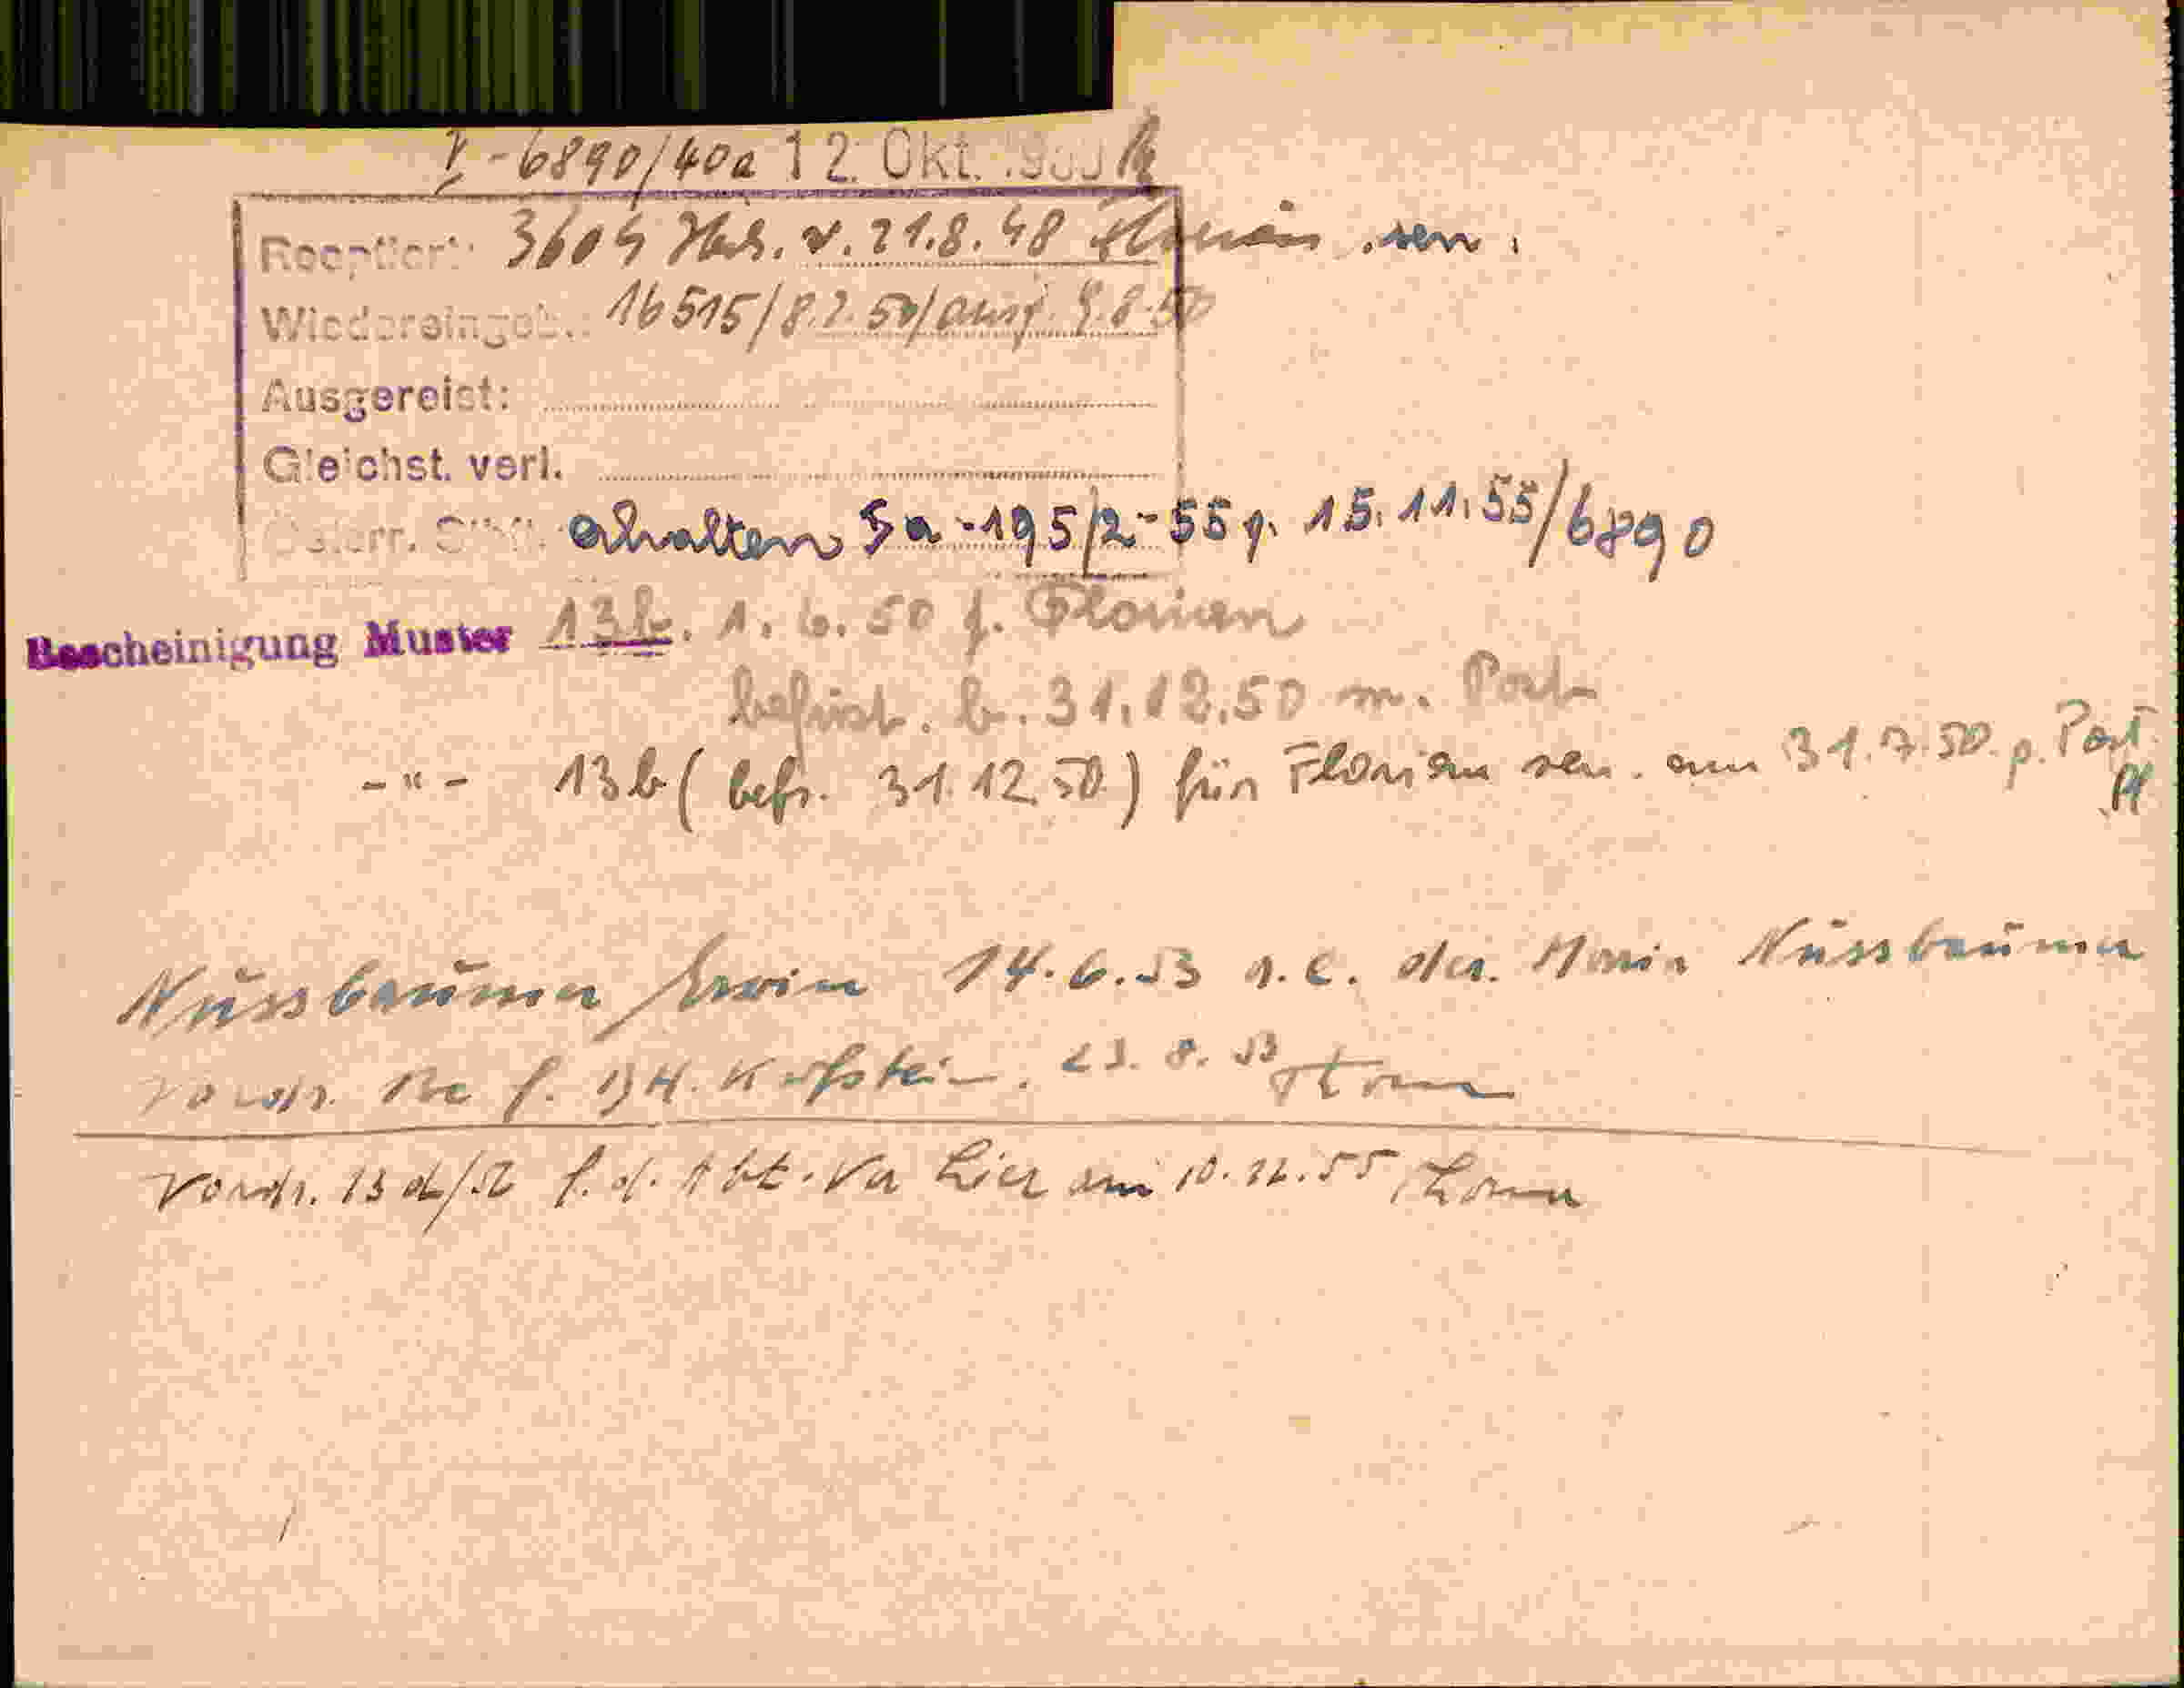 I-6890/40a 12. Okt.
3604 v. 21.8.48 Florian sen.
Wiedereingeb.: 16515/8.2.50/ausg. 9.8.50
Ausgereist:
Gleichst. verl.
Österr. erhalten 5a-195/2-55 v. 15.11.55/6890
Bescheinigung Muster 13b. 1.6.50 f. Florian
befrist. b. 31.12.50 m. Post
-"- 13b (befr. 31.12.50) für Florian sen. am 31.7.50. p. Post
Nussbaumer Erwin 14.6.53 der Maria Nussbaumer
Vordr. f. Kufstein. 23.8.53
Vordr. 13 d/ f. d. Abt. Va hier am 10.12.55